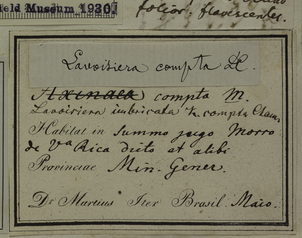 Field Museum 1930.
folior. flavescentes.
Lavoisiera compta DC.
compta M.
Lavoisiera imbricata β. compta Cham.
Habitat in summo jugo Morro
de Va Rica dicto at alibi
Provinciae Min. Gener.
Dr Martius Iter Brasil. Maio.